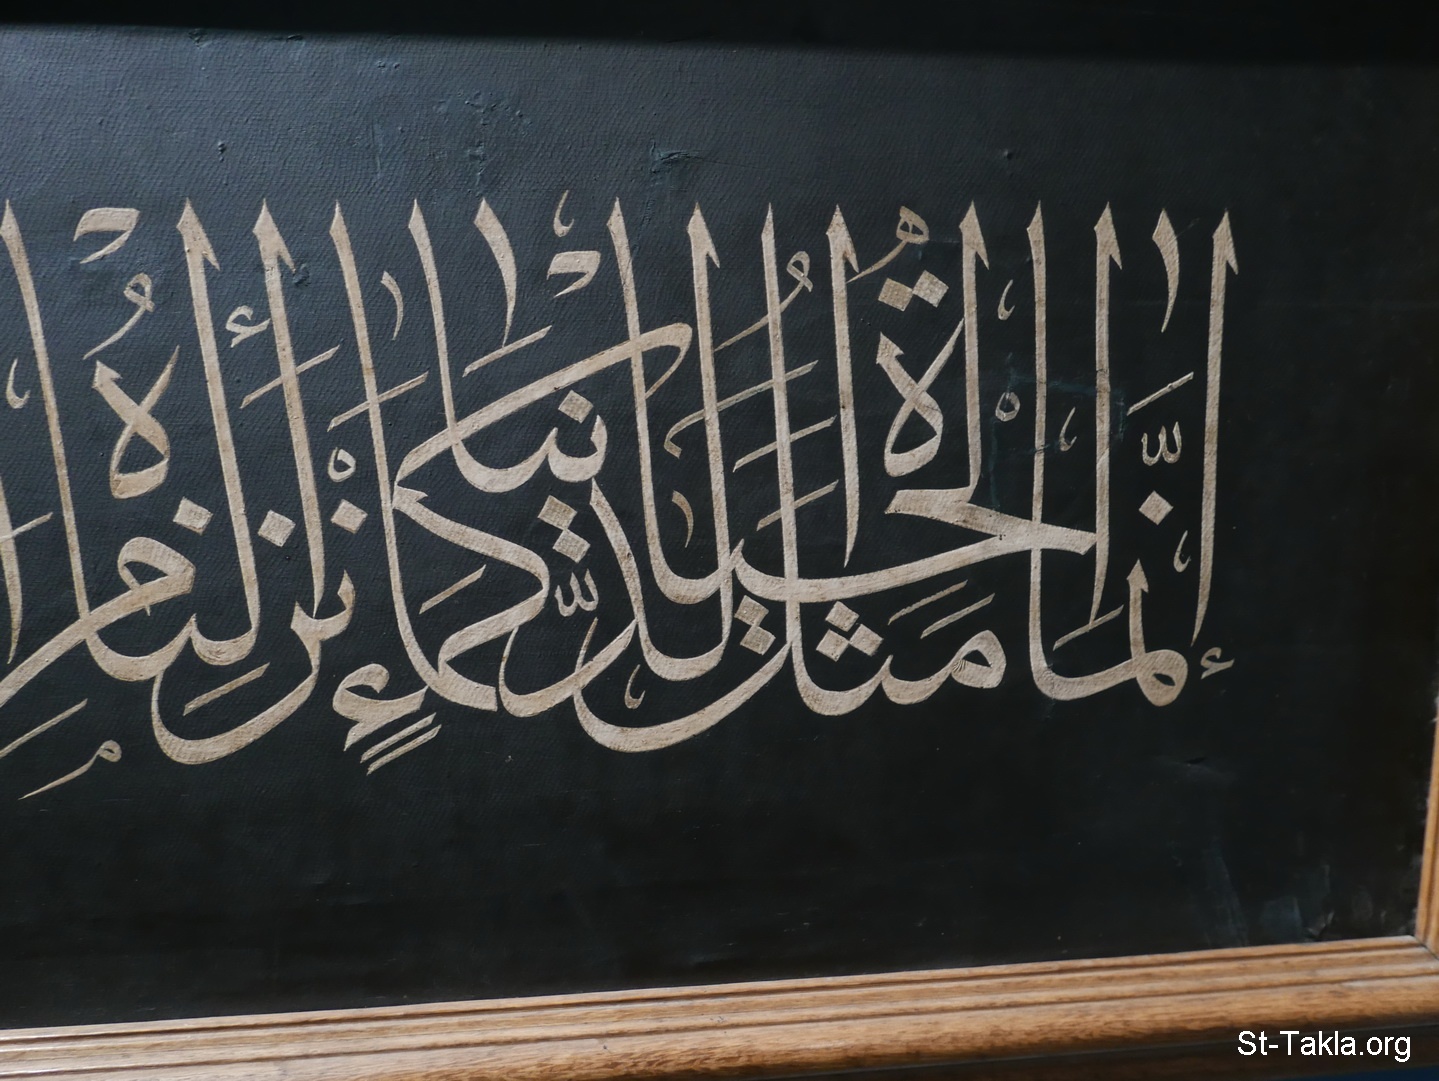 إِنَّمَا مَثَلُ الْحَيَاةِ الدُّنْيَا كَمَاءٍ أَنْزَلْنَاهُ مِنَ
St-Takla.org